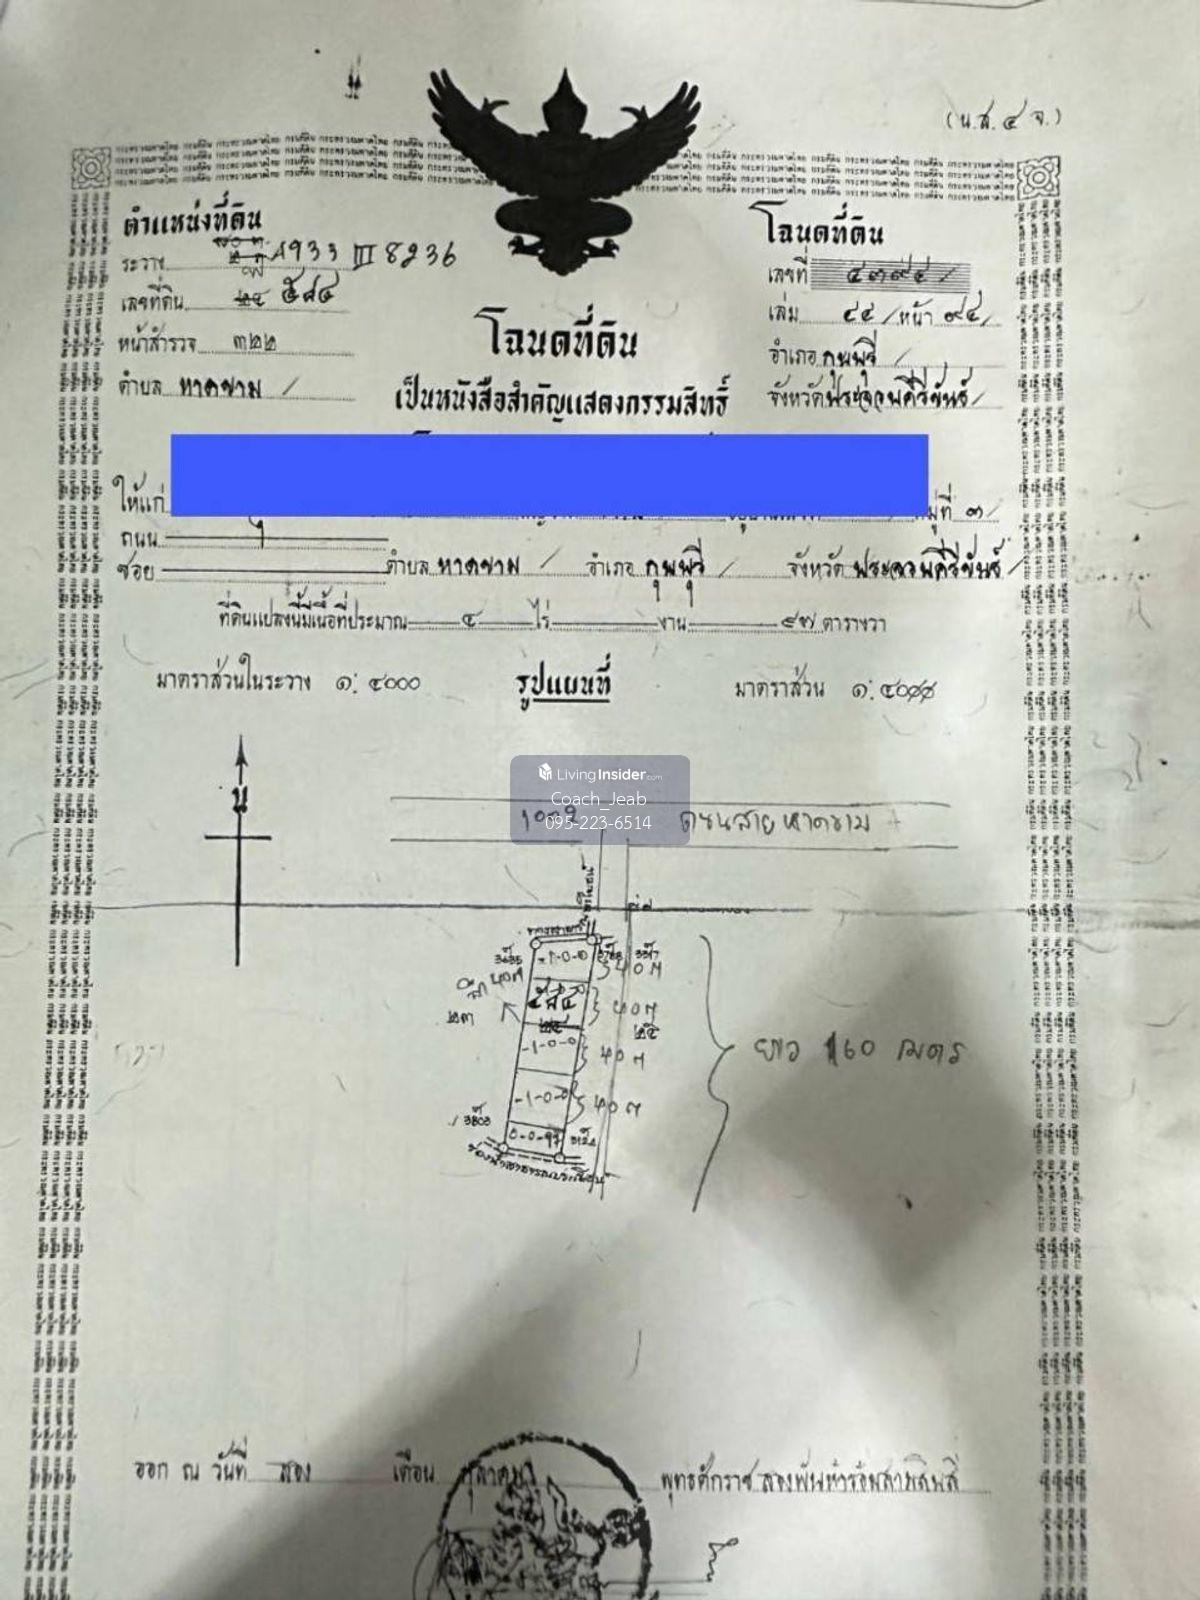 (น.ส. ๔ จ.)
ตำแหน่งที่ดิน
ระวาง 4933 III 8236
เลขที่ดิน ๕๘๔
หน้าสำรวจ ๓๒๒
ตำบล หาดขาม /
โฉนดที่ดิน
เลขที่ ๔๓๙๔ /
เล่ม ๔๔ / หน้า ๙๔ /
อำเภอ กุยบุรี /
จังหวัด ประจวบคีรีขันธ์ /
โฉนดที่ดิน
เป็นหนังสือสำคัญแสดงกรรมสิทธิ์
ให้แก่
หมู่ที่ ๓ /
ถนน
ซอย ตำบล หาดขาม / อำเภอ กุยบุรี / จังหวัด ประจวบคีรีขันธ์ /
ที่ดินแปลงนี้มีเนื้อที่ประมาณ ๔ ไร่ งาน ๙๗ ตารางวา
มาตราส่วนในระวาง ๑: ๔๐๐๐ รูปแผนที่ มาตราส่วน ๑: ๔๐๐๐
น
LivingInsider.com
Coach_Jeab
095-223-6514
ถนนสายหาดขาม
40 ฅ
๕๘๔
40 ฅ
๒๓
๒๕
-1-0-0 40 ฅ
-1-0-0 40 ฅ
0-0-97
ยาว 160 เมตร
ออก ณ วันที่ สอง เดือน ตุลาคม พุทธศักราช สองพันห้าร้อยสามสิบสี่